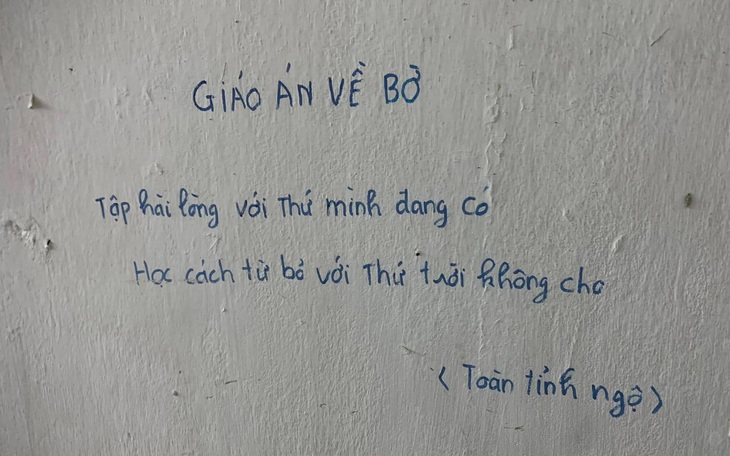 GIÁO ÁN VỀ BỜ
Tập hài lòng với Thứ mình đang Có
Học cách từ bỏ với Thứ trời không cho
< Toàn tỉnh ngộ >